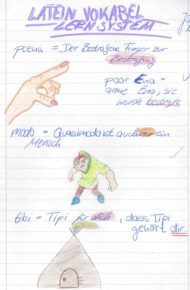 LATEIN VOKABEL
LERNSYSTEM
poena = Der Bestrafene Finger zur
Bestrafung
poor Eva -
arme Eva, sie
wurde bestraft
modo - Quasimodo ist auch nur ein
Mensch
tibi = Tipi für dich, dass Tipi
gehört dir.